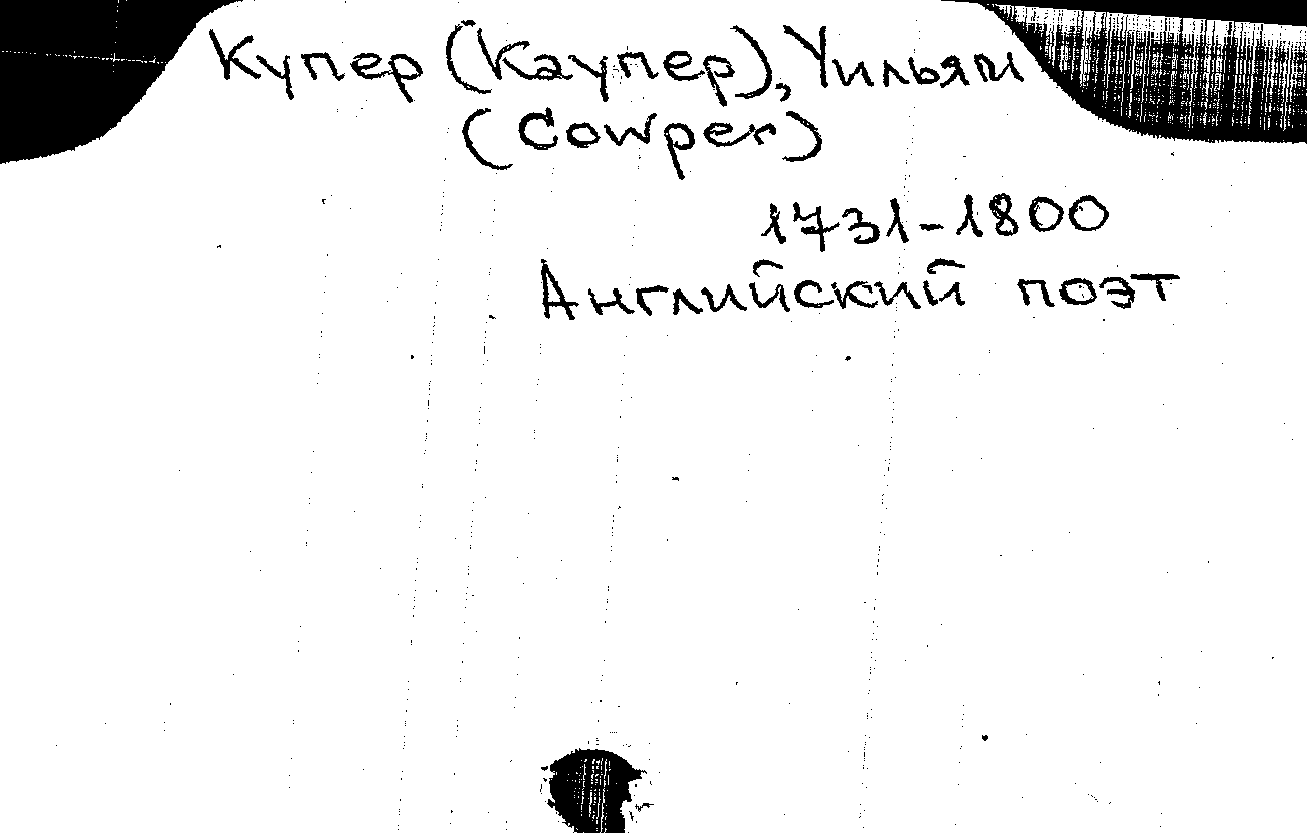 Купер (Каупер), Уильям
(Cowper)
1731-1800
Английский поэт